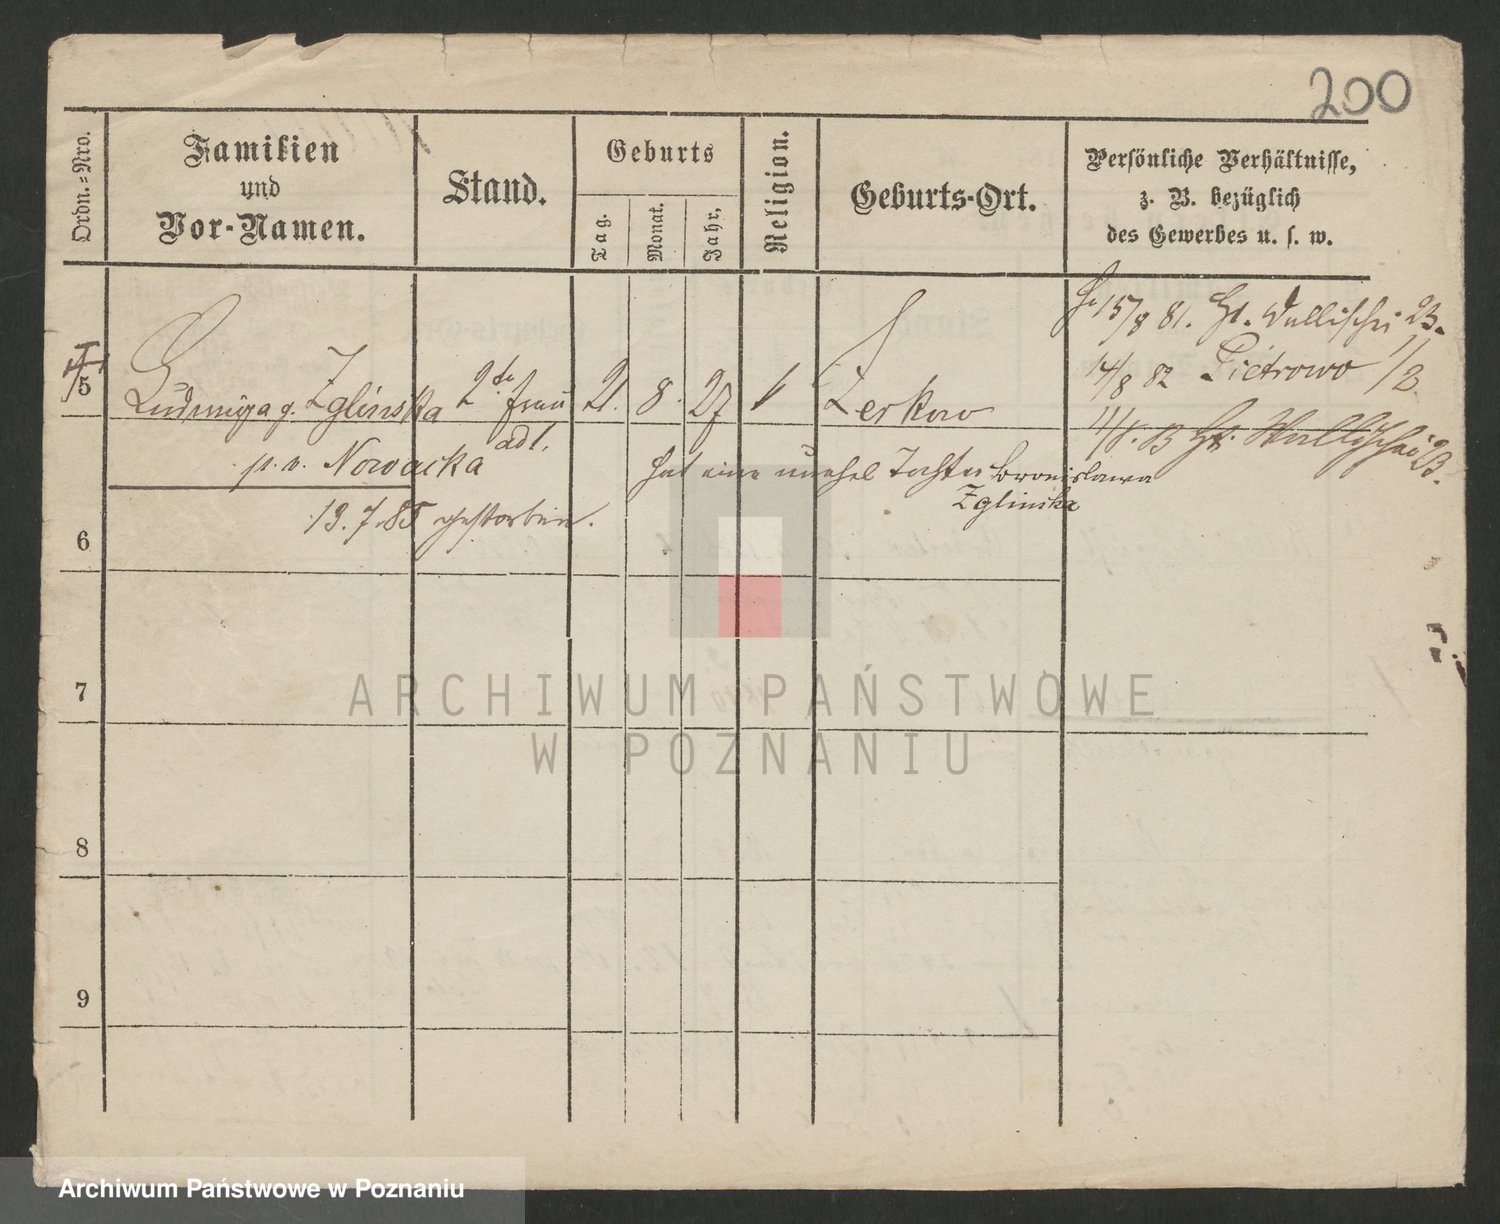 200
Ordn.=Nro.
Familien
und
Vor-Namen.
Stand.
Geburts
Tag.
Monat.
Jahr,
Religion.
Geburts-Ort.
Persönliche Verhältnisse,
z. B. bezüglich
des Gewerbes u. s. w.
15/8 81. Wallischei 23.
14/8 82 Pietrowo 1/2
Wallischei 23.
5
Ludwiga g. Zglinska
2te Frau
21. 8. 27
Zerkow
adl.
p. v. Nowacka
hat eine unehel Tochter Bronislawa
Zglinska
13. 7. 85 gestorben.
6
7
8
9
ARCHIWUM PAŃSTWOWE
W POZNANIU
Archiwum Państwowe w Poznaniu